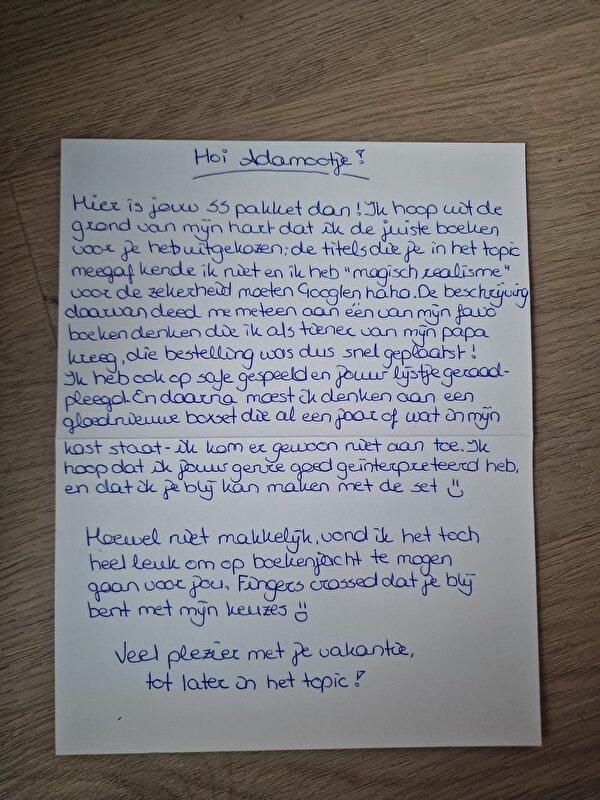 Hoi Adamootje!
Hier is jouw SS pakket dan! Ik hoop uit de
grond van mijn hart dat ik de juiste boeken
voor je heb uitgekozen; de titels die je in het topic
meegaf kende ik niet en ik heb "magisch realisme"
voor de zekerheid moeten Googlen haha. De beschrijving
daarvan deed me meteen aan één van mijn favo
boeken denken die ik als tiener van mijn papa
kreeg, die bestelling was dus snel geplaatst!
Ik heb ook op safe gespeeld en jouw lijstje geraad-
pleegd. En daarna moest ik denken aan een
gloednieuwe boxset die al een jaar of wat in mijn
kast staat - ik kom er gewoon niet aan toe. Ik
hoop dat ik jouw genre goed geïnterpreteerd heb,
en dat ik je blij kan maken met de set
Hoewel niet makkelijk, vond ik het toch
heel leuk om op boekenjacht te mogen
gaan voor jou. Fingers crossed dat je blij
bent met mijn keuzes
Veel plezier met je vakantie,
tot later in het topic!